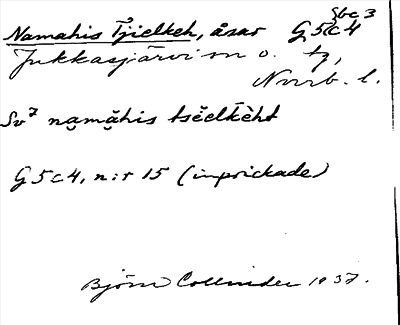 5bc3
Namahis Tjielkeh, åsar G5c4
Jukkasjärvi sn o. tg,
Norrb. l.
Sv⁷ na̮mă̮his tsĕĕltkĕht
G5c4, n:r 15 (inprickade)
Björn Collinder 1937.